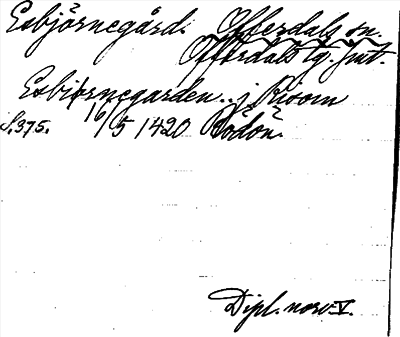 Esbjörnegård. Offerdals sn.
Offerdals tg. Jmt.
Esbiornegarden.. j Rioom
S. 375. 16/5 1420 Rödön.
Dipl. norv. V.